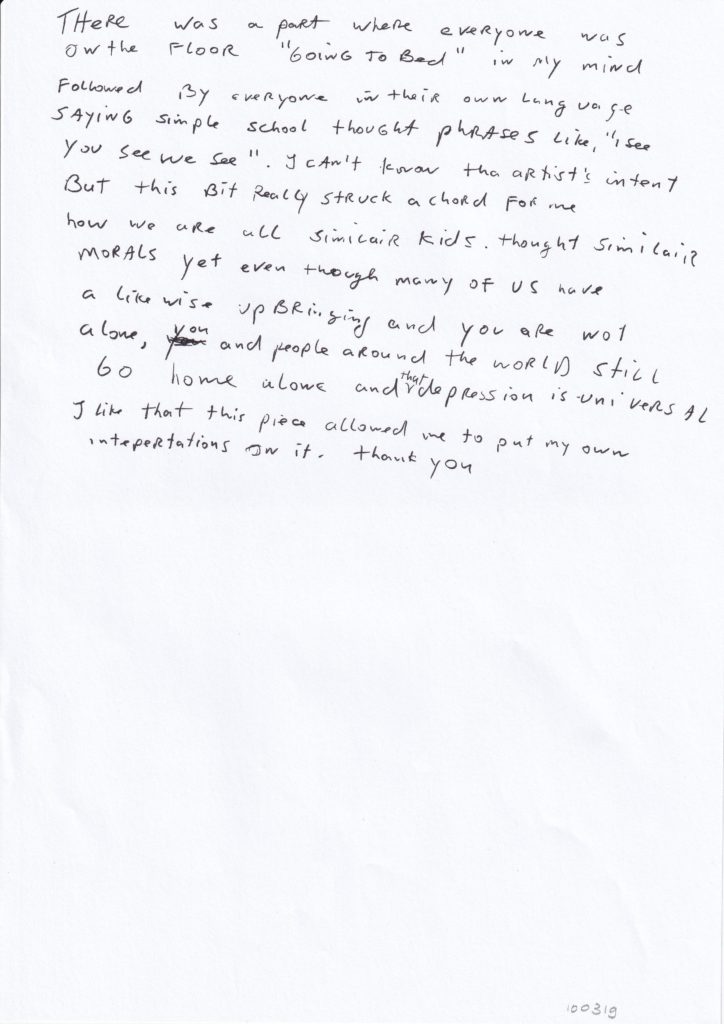 THERE was a part where everyone was
on the FLOOR "GOING TO Bed" in my mind
Followed By everyone in their own language
SAYING simple school thought phRASES Like, "I see
You see we see". I can't know the artist's intent
But this Bit Really struck a chord For me
how we are all similair kids. thought similair
MORALS yet even though many of us have
a likewise upBRinging and you are not
alone, you and people around the world still
GO home alone and that depression is universal
I like that this piece allowed me to put my own
intepertations on it. Thank you
100319